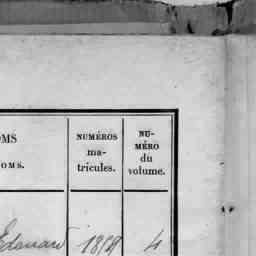 OMS
OMS.
NUMÉROS
ma-
tricules.
NU-
MÉRO
du
volume.
Edouard 1819 4